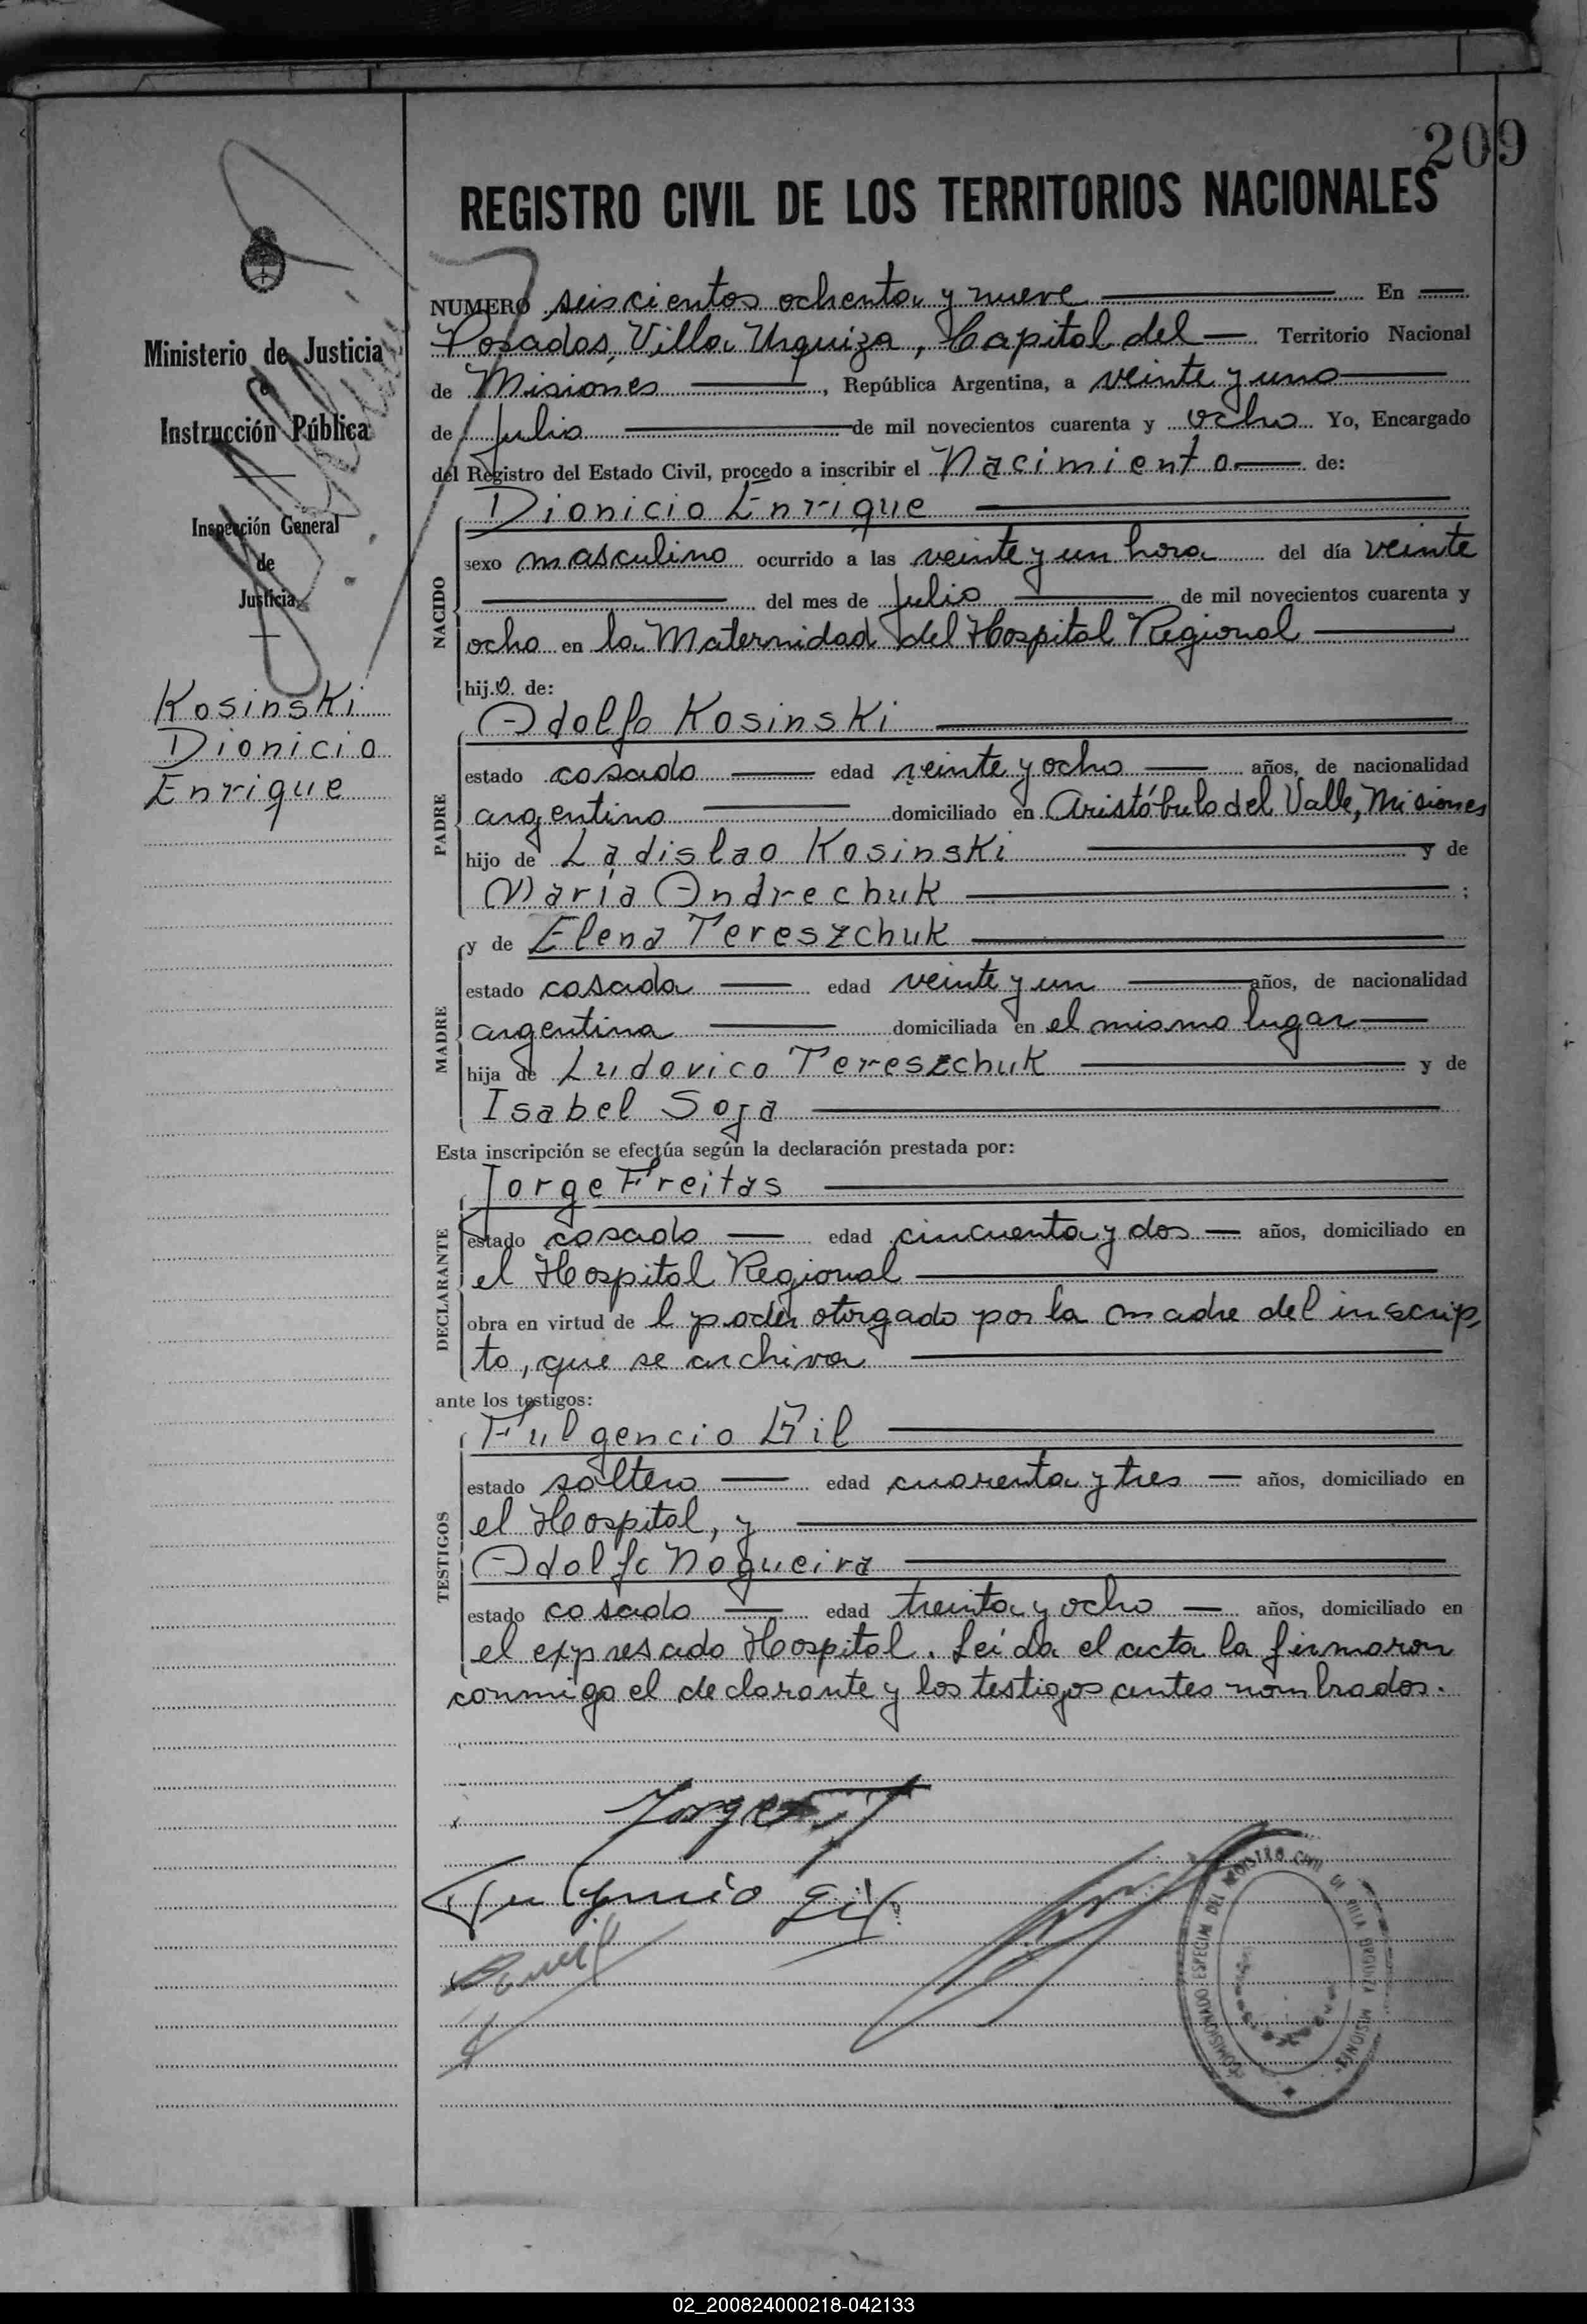 209
REGISTRO CIVIL DE LOS TERRITORIOS NACIONALES
Ministerio de Justicia
e
Instrucción Pública
Inspección General
de
Justicia
Kosinski
Dionicio
Enrique
NUMERO seiscientos ochenta y nueve En
Posadas, Villa Urquiza, Capital del Territorio Nacional
de Misiones, República Argentina, a veinte y uno
de Julio de mil novecientos cuarenta y ocho Yo, Encargado
del Registro del Estado Civil, procedo a inscribir el Nacimiento de:
NACIDO
Dionicio Enrique
sexo masculino ocurrido a las veinte y un hora del día veinte
del mes de Julio de mil novecientos cuarenta y
ocho en la Maternidad del Hospital Regional
hijo de:
PADRE
Adolfo Kosinski
estado casado edad veinte y ocho años, de nacionalidad
argentino domiciliado en Aristóbulo del Valle, Misiones
hijo de Ladislao Kosinski y de
María Andrechuk ;
MADRE
y de Elena Tereszchuk
estado casada edad veinte y un años, de nacionalidad
argentina domiciliada en el mismo lugar
hija de Ludovico Tereszchuk y de
Isabel Soja
Esta inscripción se efectúa según la declaración prestada por:
DECLARANTE
Jorge Freitas
estado casado edad cincuenta y dos años, domiciliado en
el Hospital Regional
obra en virtud de l poder otorgado por la madre del inscrip,
to, que se archiva
ante los testigos:
TESTIGOS
Fulgencio Gil
estado soltero edad cuarenta y tres años, domiciliado en
el Hospital, y
Adolfo Nogueira
estado casado edad treinta y ocho años, domiciliado en
el expresado Hospital. Leída el acta la firmaron
conmigo el declarante y los testigos antes nombrados.
Jorge
Fulgencio Gil
COMISIONADO ESPECIAL DEL REGISTRO CIVIL VILLA URQUIZA MISIONES
02_200824000218-042133